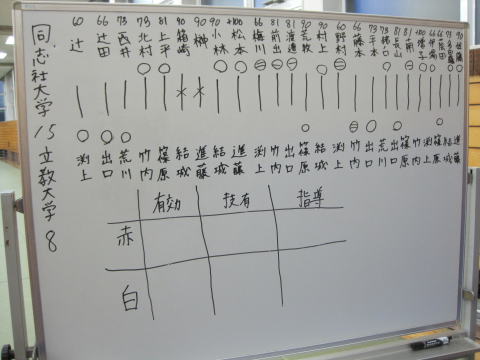 同志社大学 15 立教大学 8
60 辻
66 辻田
73
73 北村
81 上平
90 箱崎
90 榊
90 小林
+100 松本
66 梅川
81 前出
81
90 荒牧
90 村上
60 野村
66 藤本
73 平本
73 樋口
81 長山
81 南
+100
66
66
90
渕上
出口
荒川
竹内
篠原
結城
進藤
結城
進藤
渕上
竹内
出口
篠原
結城
渕上
竹内
出口
荒川
篠原
竹内
渕上
篠原
結城
進藤
有効 技有 指導
赤
白